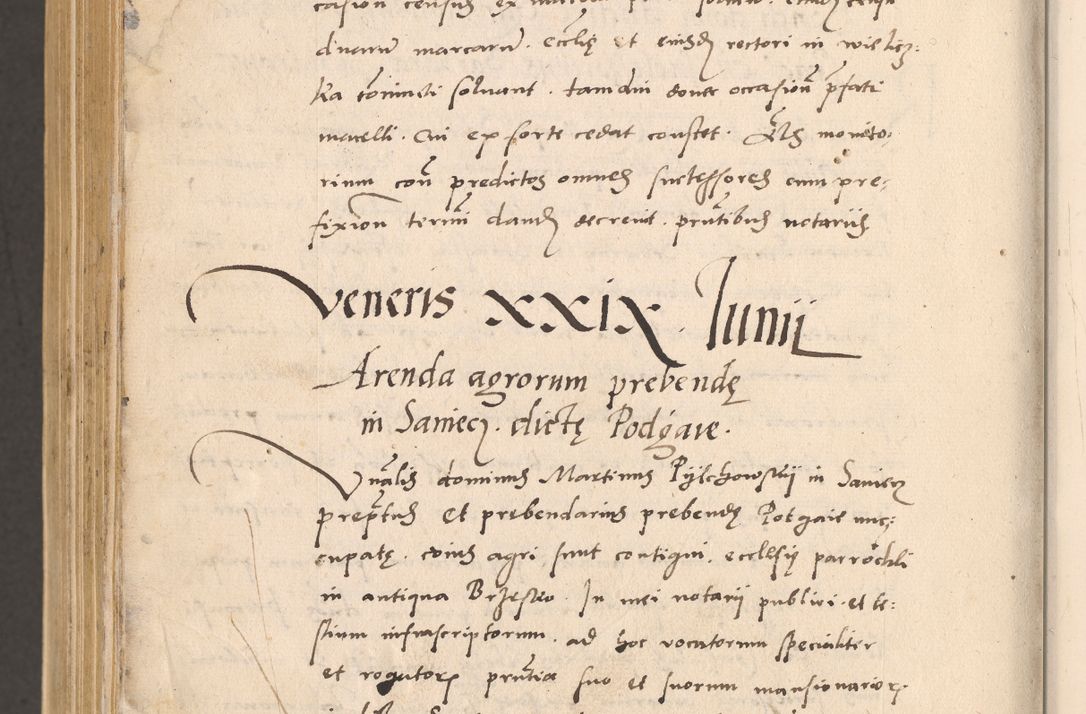 duarum marcarum. Ecclię et eiusdem rectori in wielicz-
ka convicti solvant. tamdiu donec occasionem prefati
macelli. Cui ex sorte cedat constet. Quas monito-
rium con predictos omnes successores cum pre-
fixion termini dandum decrevit. presentibus notariis
Veneris XXIX Iunii
Arenda agrorum prebendę
in Saniecz. dictę Podgaie.
Vnalis dominus Martinus Pylchowskij in Saniecz
prepositus Et prebendarius prebendę Potgaie nuc-
cupatę. cuius agri sunt contigui. ecclesię parrochli
in antiqua Brzesko. In mei notarij publici et te-
stium infrascriptorum. ad hoc vocatorum specialiter
et rogatorum presentia suo et suorum mansionariorum